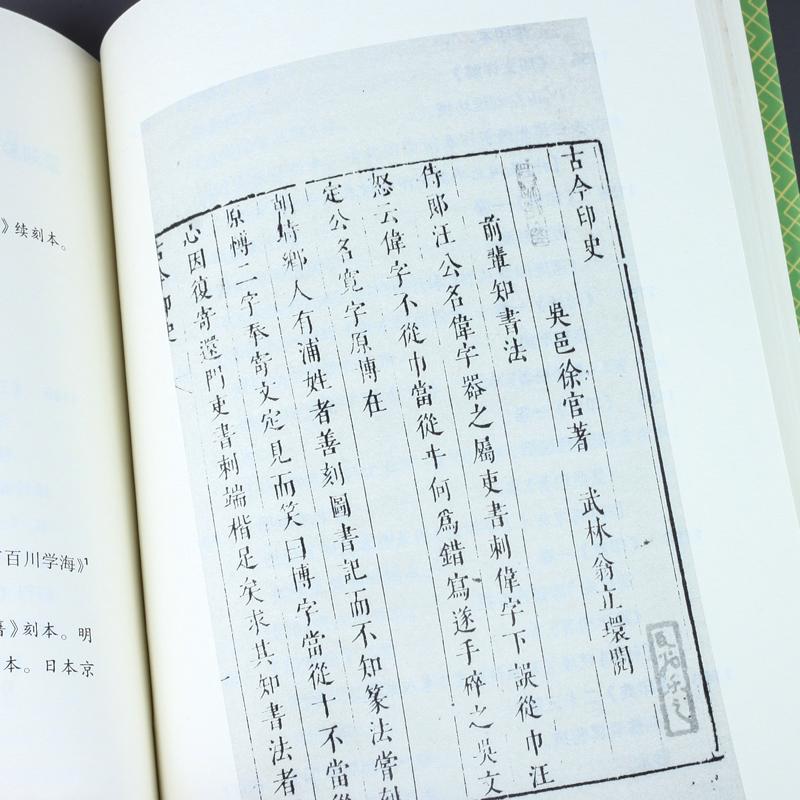 》续刻本。
百川学海》
》刻本。明
本。日本京
古今印史
吳邑徐官著 武林翁立環閱
前輩知書法
侍郎汪公名偉字器之屬吏書刺偉字下誤從巾汪
怒云偉字不從巾當從㐄何爲錯寫遂手碎之吳文
定公名寬字原博在
朝時鄉人有浦姓者善刻圖書記而不知篆法嘗刻
原愽二字奉寄文定見而笑曰博字當從十不當從
心因復寄還門吏書刺端楷足矣求其知書法者
古今印史